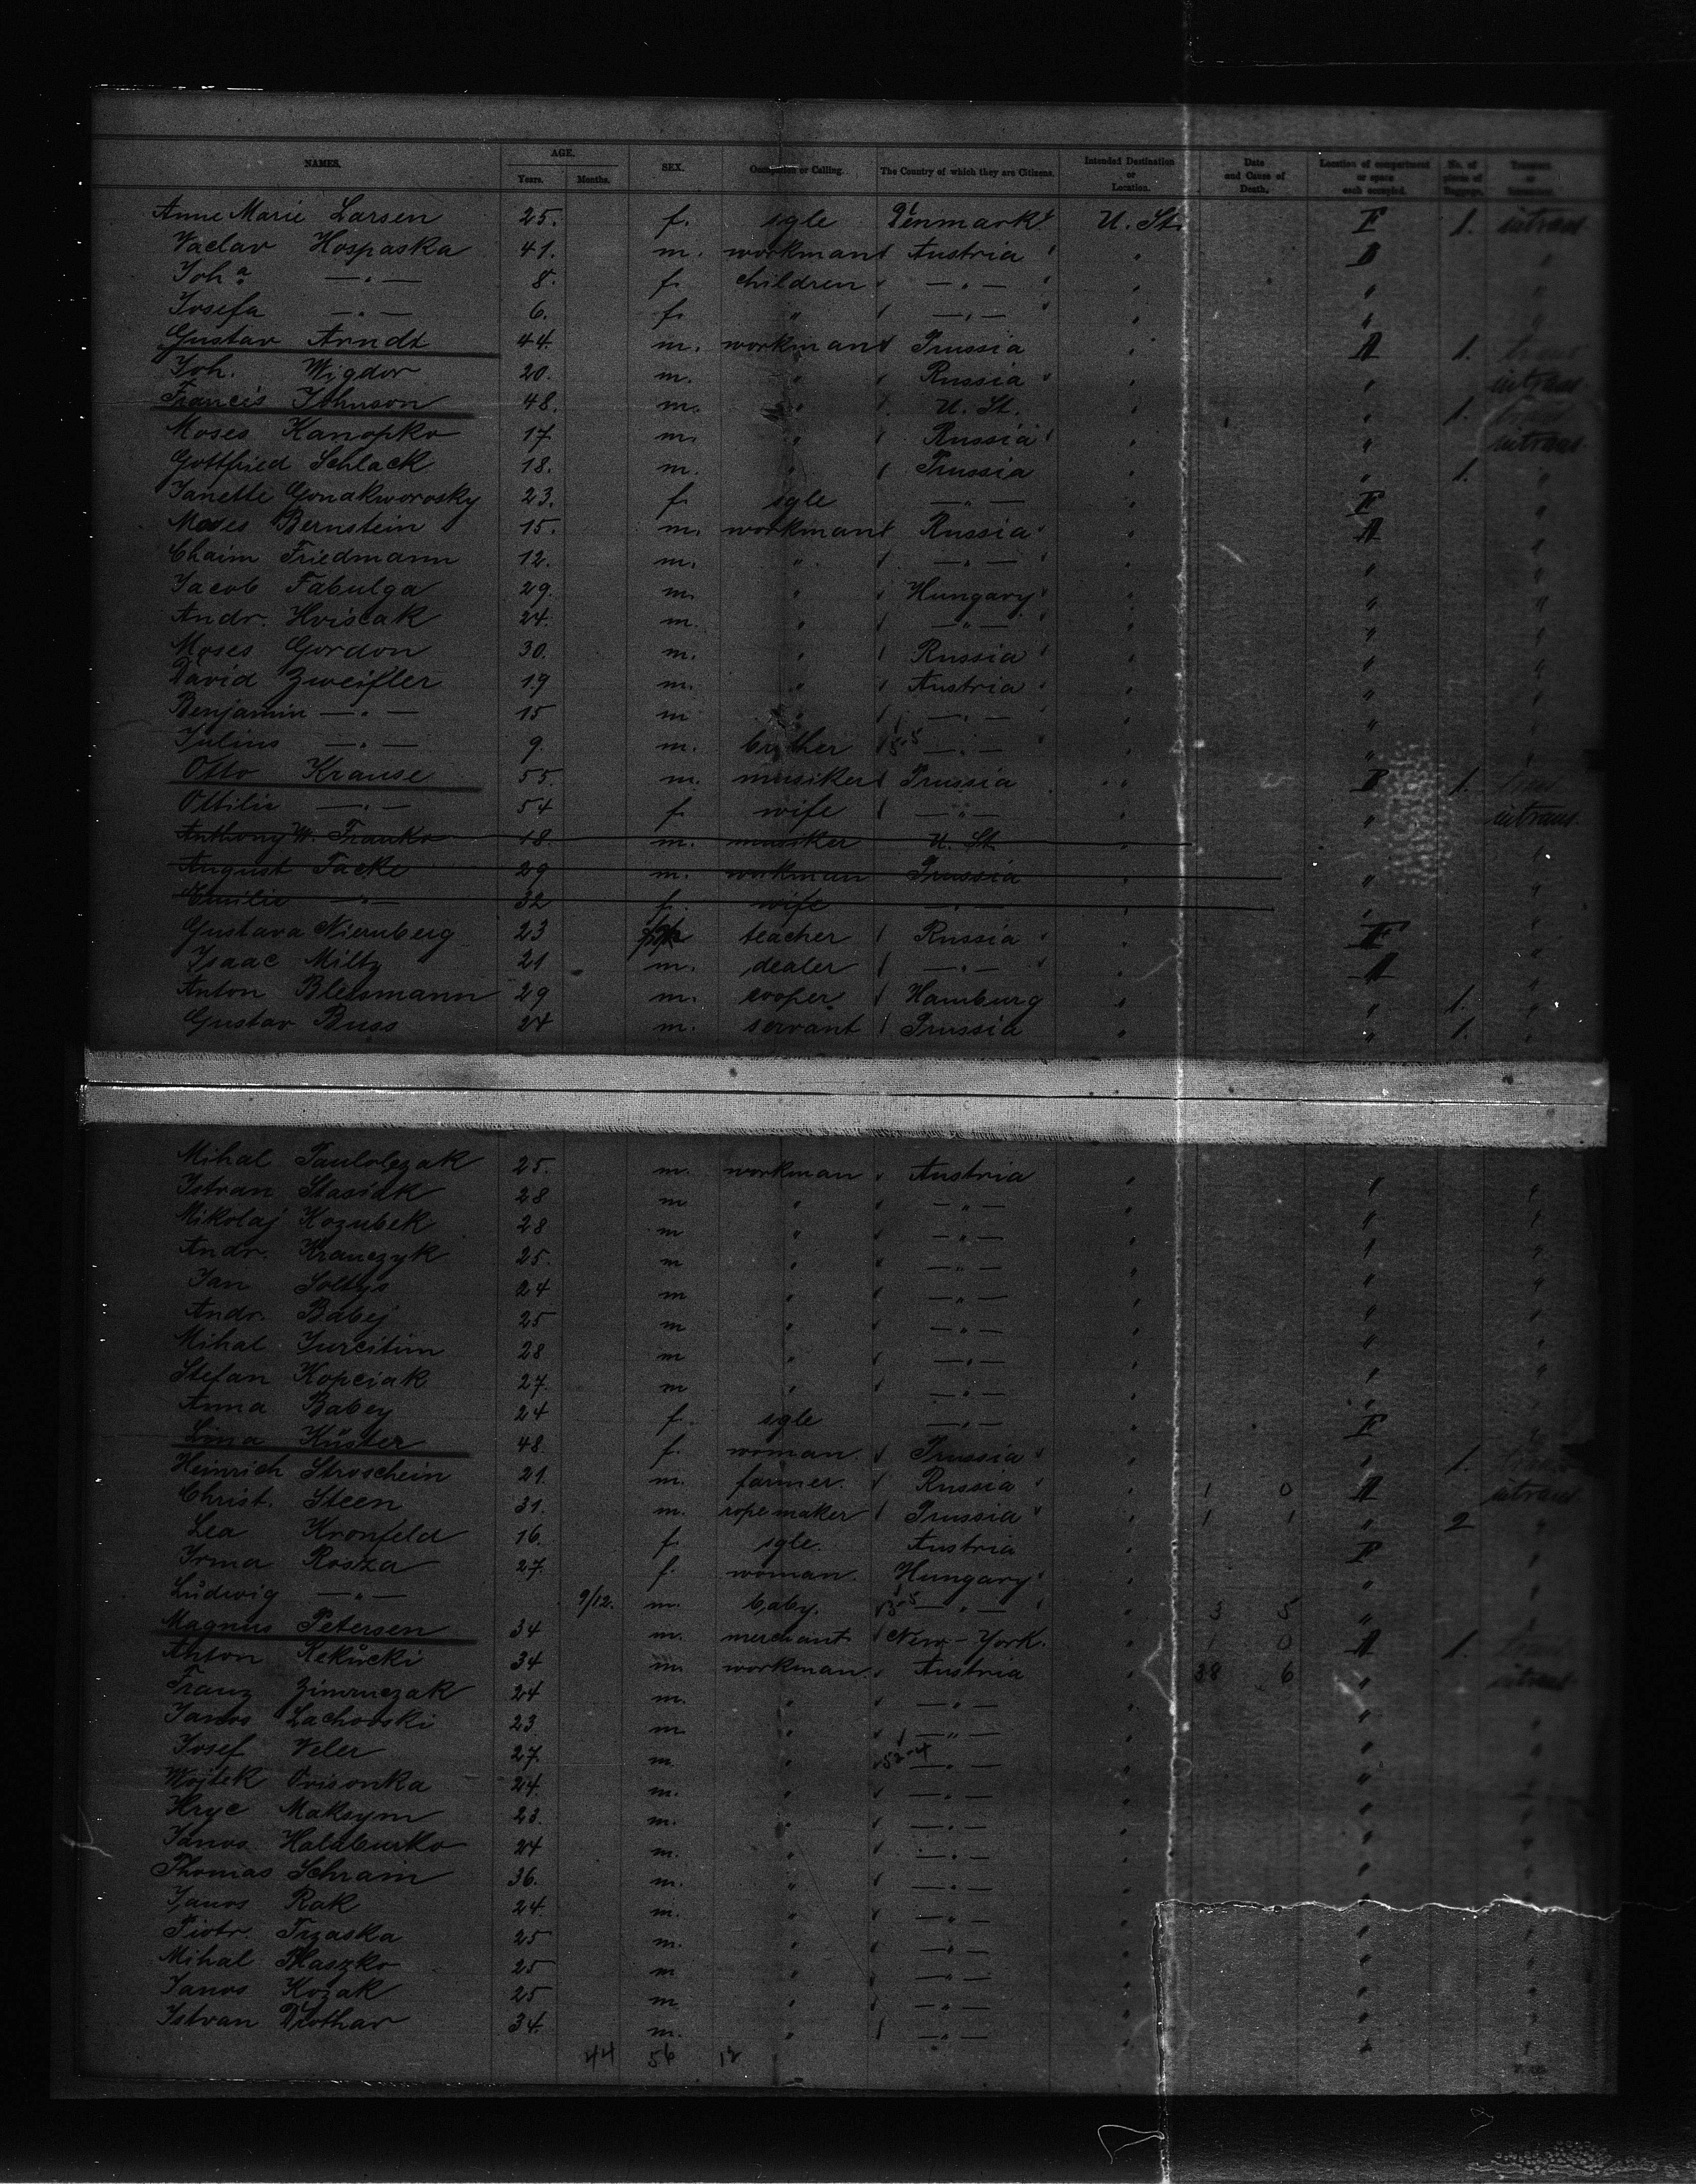 NAMES. AGE. Years. Months. SEX. Occupation or Calling. The Country of which they are Citizens. Intended Destination or Location. Date and Cause of Death. Location of compartment or space each occupied. No. of pieces of Baggage.
Anne Marie Larsen 25. f. sgle Denmark U. St. F 1. intrans
Vaclav Hospaska 41. m. workman Austria "
Joh.a —"— 8. f. children —"— " "
Josefa —"— 6. f. " —"— " "
Gustav Arndt 44. m. workman Prussia " A 1.
Joh. Wigdor 20. m. " Russia " " intrans
Francis Johnson 48. m. " U. St. " " 1.
Moses Kanopko 17 m. " Russia " " intrans
Gottfried Schlack 18. m. " Prussia " " 1. "
Janette Gonakworosky 23. f. sgle —"— " F "
Moses Bernstein 15. m. workman Russia " A "
Chaim Friedmann 12. m. " —"— " " "
Jacob Fabulga 29. m. " Hungary " " "
Andr. Hviscak 24. m. " —"— " " "
Moses Gordon 30. m. " Russia " " "
David Zweifler 19 m. " Austria " " "
Benjamin —"— 15 m " —"— " " "
Julius —"— 9. m. brother —"— " " "
Otto Krause 55. m. musiker Prussia " 1.
Ottilie —"— 54 f. wife —"— " intrans
Anthony W. Franko 18. m. musiker U. St. "
August Tacke 29 m. workman Prussia " "
Emilie —"— 32 f. wife —"— " "
Gustava Niernberg 23 teacher Russia " F "
Isaac Miltz 21 m. dealer —"— " A "
Anton Blessmann 29 m. cooper Hamburg " " 1. "
Gustav Buss 24 m. servant Prussia " " 1. "
Mihal 25. m. workman Austria " " "
Istvan Stasiak 28 m " —"— " " "
Mikolaj Kozubek 28 m " —"— " " "
Andr. Krawczyk 25. m " —"— " " "
Jan Soltys 24 m " —"— " " "
Andr. Babej 25 m " —"— " " "
Mihal 28 m " —"— " " "
Stefan Kopciak 27. m " —"— " " "
Anna Babey 24 f. sgle —"— " F "
Lina Küster 48. f. woman Prussia " " 1.
Heinrich Stroschein 21. m. farmer. Russia " 1 0 A intrans
Christ. Steen 31. m. ropemaker Prussia " 1 1 " 2 "
Lea Kronfeld 16. f. sgle. Austria " F "
Irma Rosza 27. f. woman. Hungary " " "
Ludwig —"— 9/12. m. baby. —"— " 3 5 " "
Magnus Petersen 34 m. merchant New-York. " 1 0 A 1.
Anton 34 m. workman. Austria " 38 6 " intrans
Franz 24 m. " —"— " " "
Janos Lachovski 23 m. " —"— " " "
Josef Veler 27. m. " —"— " " "
Wojtek Orisonka 24. m. " —"— " " "
Hryc Maksym 23. m. " —"— " " "
Janos Halaburko 24 m. " —"— " " "
Thomas Schram 36. m. " —"— " " "
Janos Rak 24 m. " —"— " " "
Piotr Trzaska 25 m. " —"— " " "
Mihal 25 m " —"— " " "
Janos Kozak 25 m " —"— " " "
Istvan Drothar 34. m. " —"— " " "
44 56 12